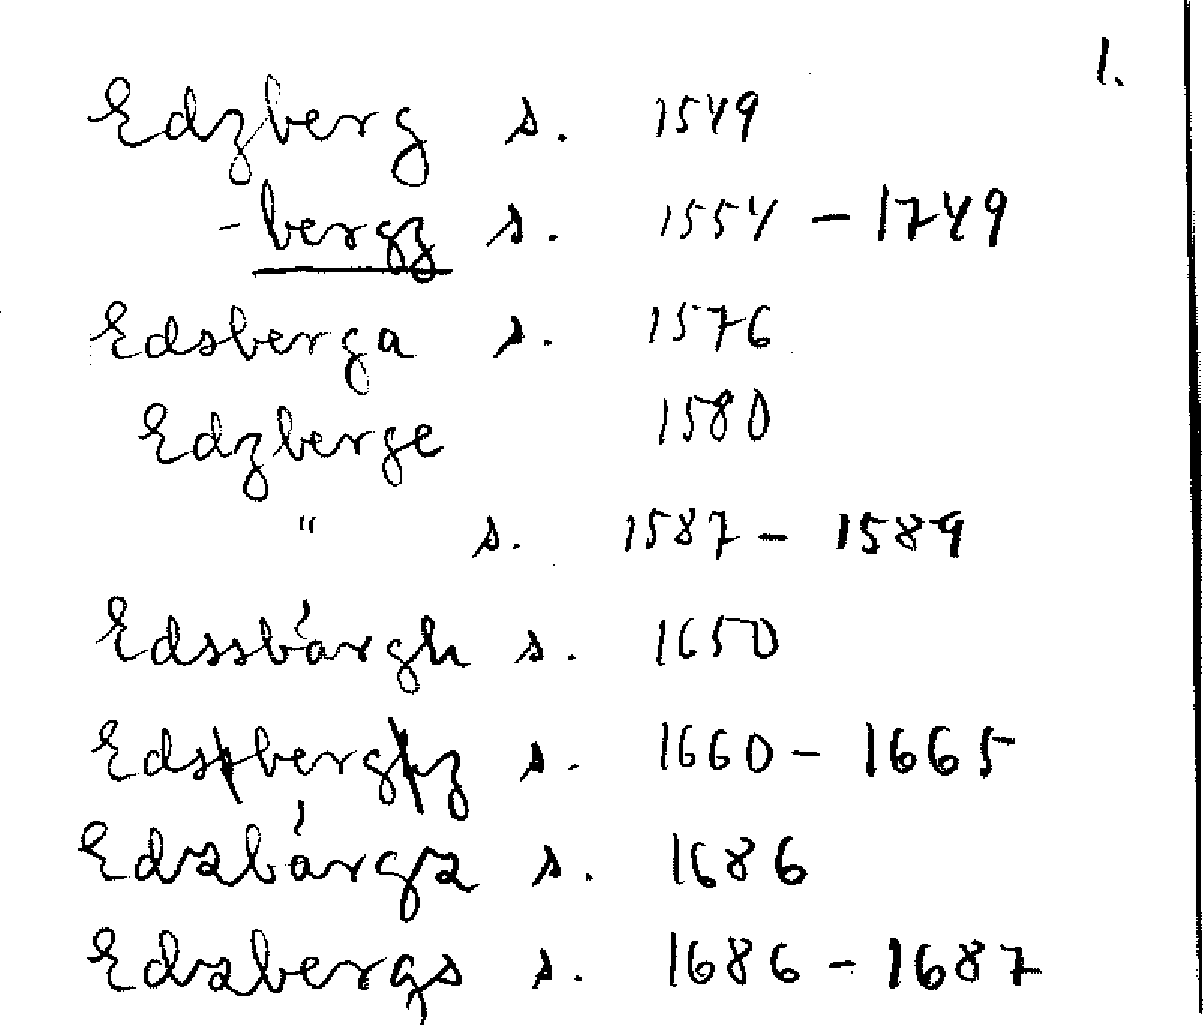 1.
Edzberg s. 1549
-bergz s. 1554 - 1749
Edsberga s. 1576
Edzberge 1580
" s. 1587 - 1589
Edssbärgh s. 1650
Edsbergz s. 1660 - 1665
Edzbärgz s. 1686
Edzbergs s. 1686 - 1687